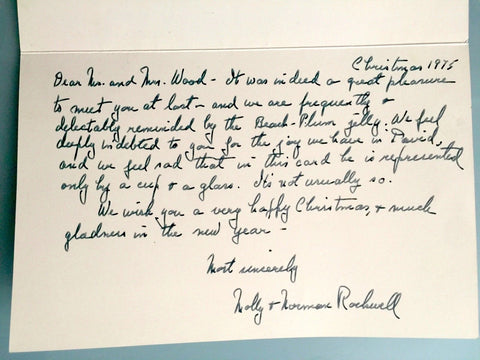 Christmas 1975
Dear Mr. and Mrs. Wood - It was indeed a great pleasure
to meet you at last - and we are frequently &
delectably reminded by the Beach-Plum jelly. We feel
deeply indebted to you for the joy we have in David,
and we feel sad that in this card he is represented
only by a cup & a glass. It's not usually so.
We wish you a very happy Christmas, & much
gladness in the new year -
Most sincerely
Molly & Norman Rockwell